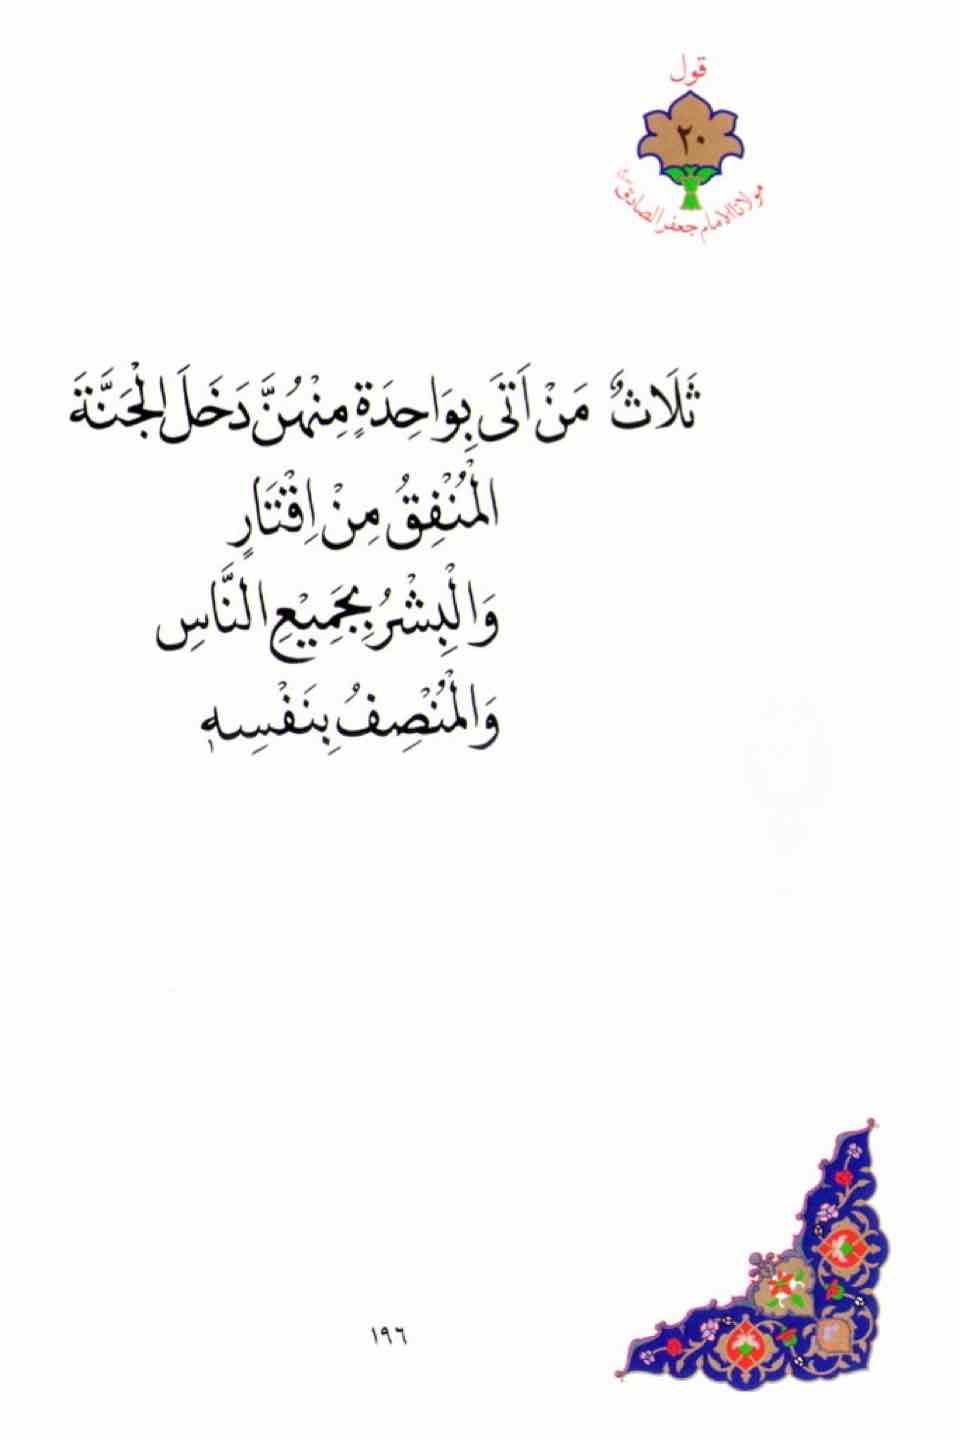 قول
٢٠
مولانا الامام جعفر الصادق
ثَلَاثٌ مَنْ اَتَى بِوَاحِدَةٍ مِنْهُنَّ دَخَلَ الْجَنَّةَ
الْمُنْفِقُ مِنْ اِقْتَارٍ
وَالْبِشْرُ بِجَمِيْعِ النَّاسِ
وَالْمُنْصِفُ بِنَفْسِهٖ
١٩٦